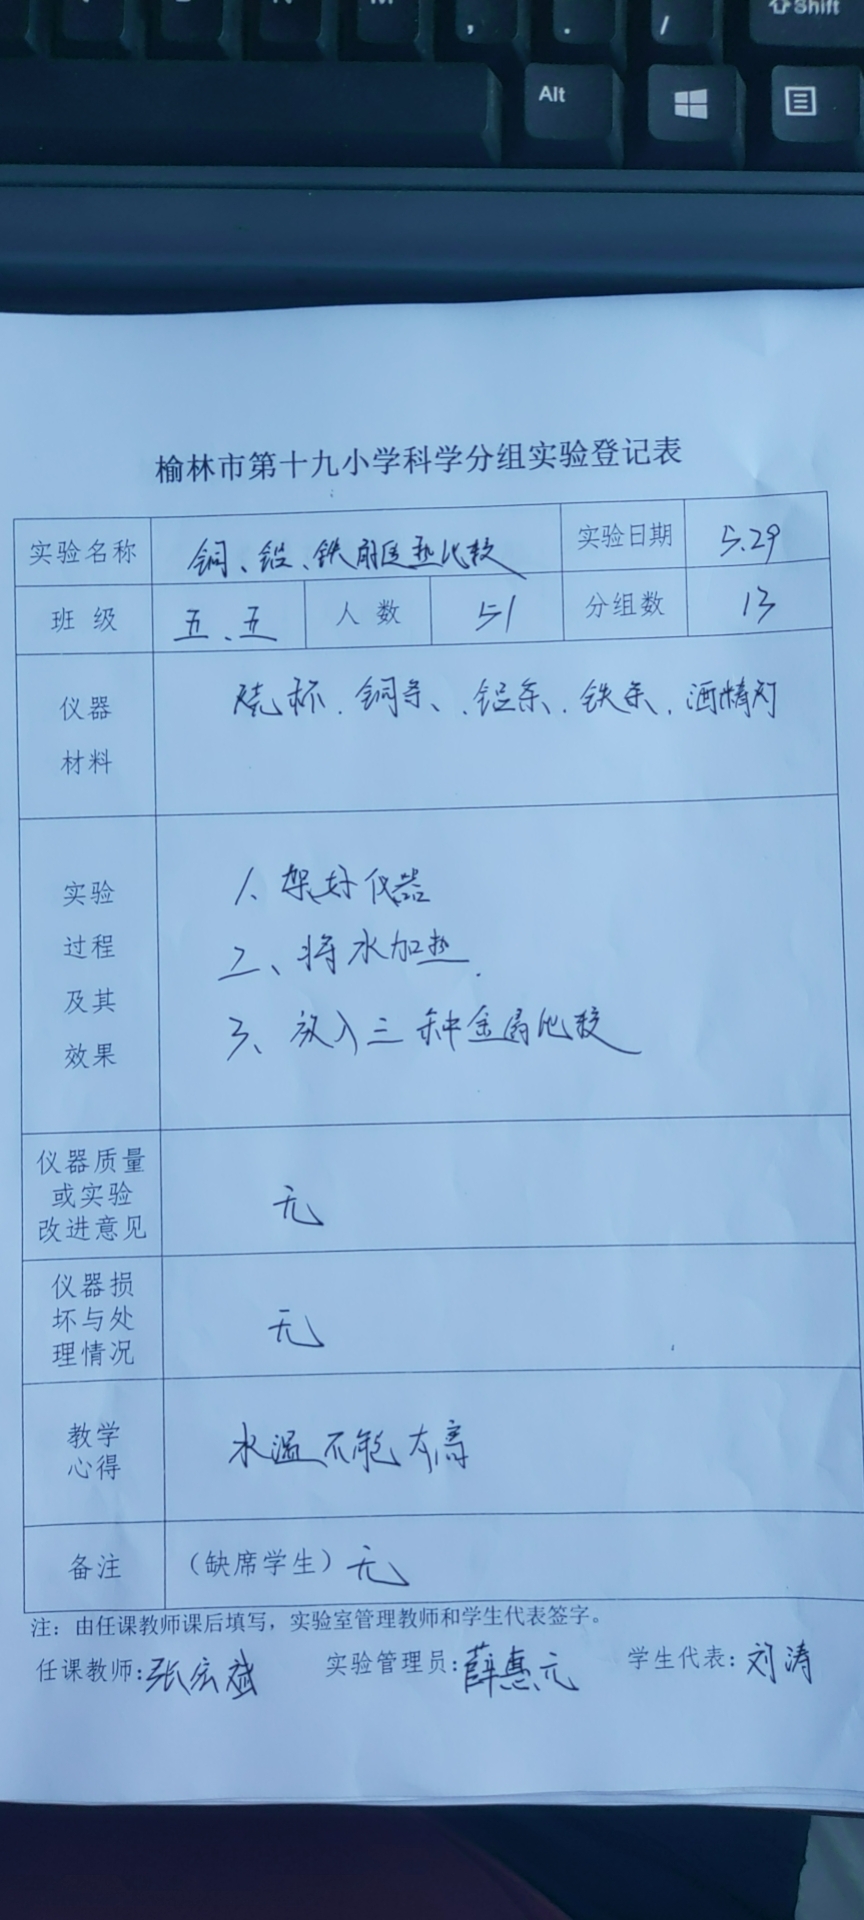 Shift
Alt
榆林市第十九小学科学分组实验登记表
实验名称 铜、铝、铁的传热比较 实验日期 5.29
班级 五.五 人数 51 分组数 13
仪器材料 烧杯.铜条、.铝条.铁条.酒精灯
实验过程及其效果
1、架好仪器
2、将水加热.
3、放入三种金属比较
仪器质量或实验改进意见 无
仪器损坏与处理情况 无
教学心得 水温不能太高
备注 (缺席学生) 无
注：由任课教师课后填写，实验室管理教师和学生代表签字。
任课教师:张宏斌 实验管理员:薛惠元 学生代表:刘涛